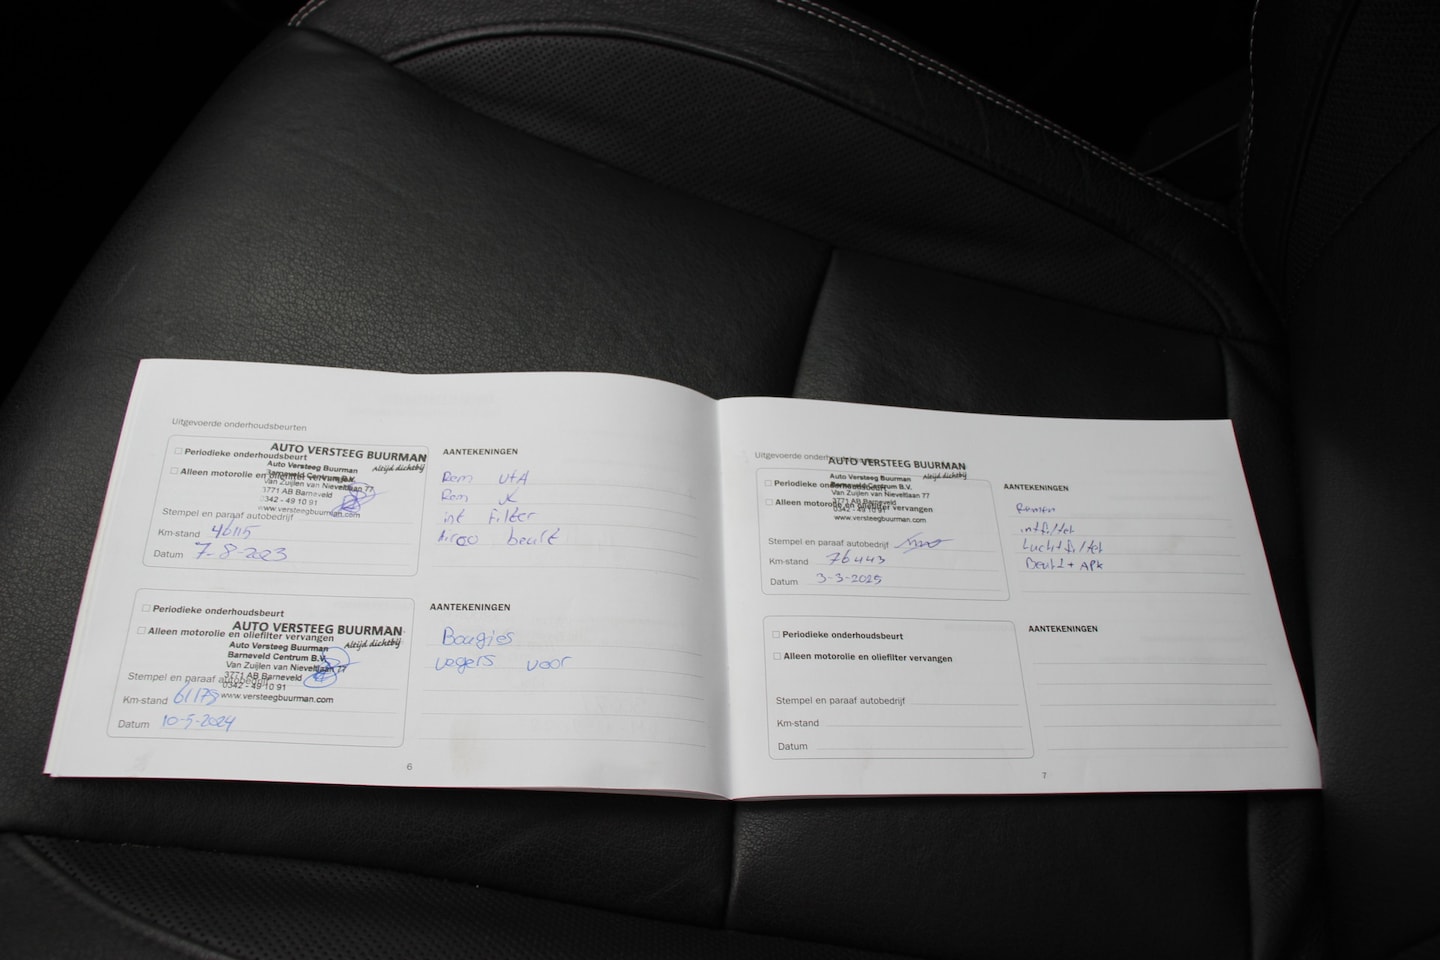 Uitgevoerde onderhoudsbeurten
☐ Periodieke onderhoudsbeurt
☐ Alleen motorolie en oliefilter vervangen
AUTO VERSTEEG BUURMAN
Altijd dichtbij
Auto Versteeg Buurman
Barneveld Centrum B.V.
Van Zuijlen van Nieveltlaan 77
3771 AB Barneveld
0342 - 49 10 91
www.versteegbuurman.com
Stempel en paraaf autobedrijf
Km-stand 46115
Datum 7-8-2023
AANTEKENINGEN
Rem V+A
Rem
int filter
Airco beurt
☐ Periodieke onderhoudsbeurt
☐ Alleen motorolie en oliefilter vervangen
AUTO VERSTEEG BUURMAN
Altijd dichtbij
Auto Versteeg Buurman
Barneveld Centrum B.V.
Van Zuijlen van Nieveltlaan 77
3771 AB Barneveld
0342 - 49 10 91
www.versteegbuurman.com
Stempel en paraaf autobedrijf
Km-stand 61175
Datum 10-5-2024
AANTEKENINGEN
Bougies
vegers voor
6
Uitgevoerde onderhoudsbeurten
☐ Periodieke onderhoudsbeurt
☐ Alleen motorolie en oliefilter vervangen
AUTO VERSTEEG BUURMAN
Altijd dichtbij
Auto Versteeg Buurman
Barneveld Centrum B.V.
Van Zuijlen van Nieveltlaan 77
3771 AB Barneveld
0342 - 49 10 91
www.versteegbuurman.com
Stempel en paraaf autobedrijf
Km-stand 76443
Datum 3-3-2025
AANTEKENINGEN
intfilter
Luchtfilter
+ APK
☐ Periodieke onderhoudsbeurt
☐ Alleen motorolie en oliefilter vervangen
Stempel en paraaf autobedrijf
Km-stand
Datum
AANTEKENINGEN
7